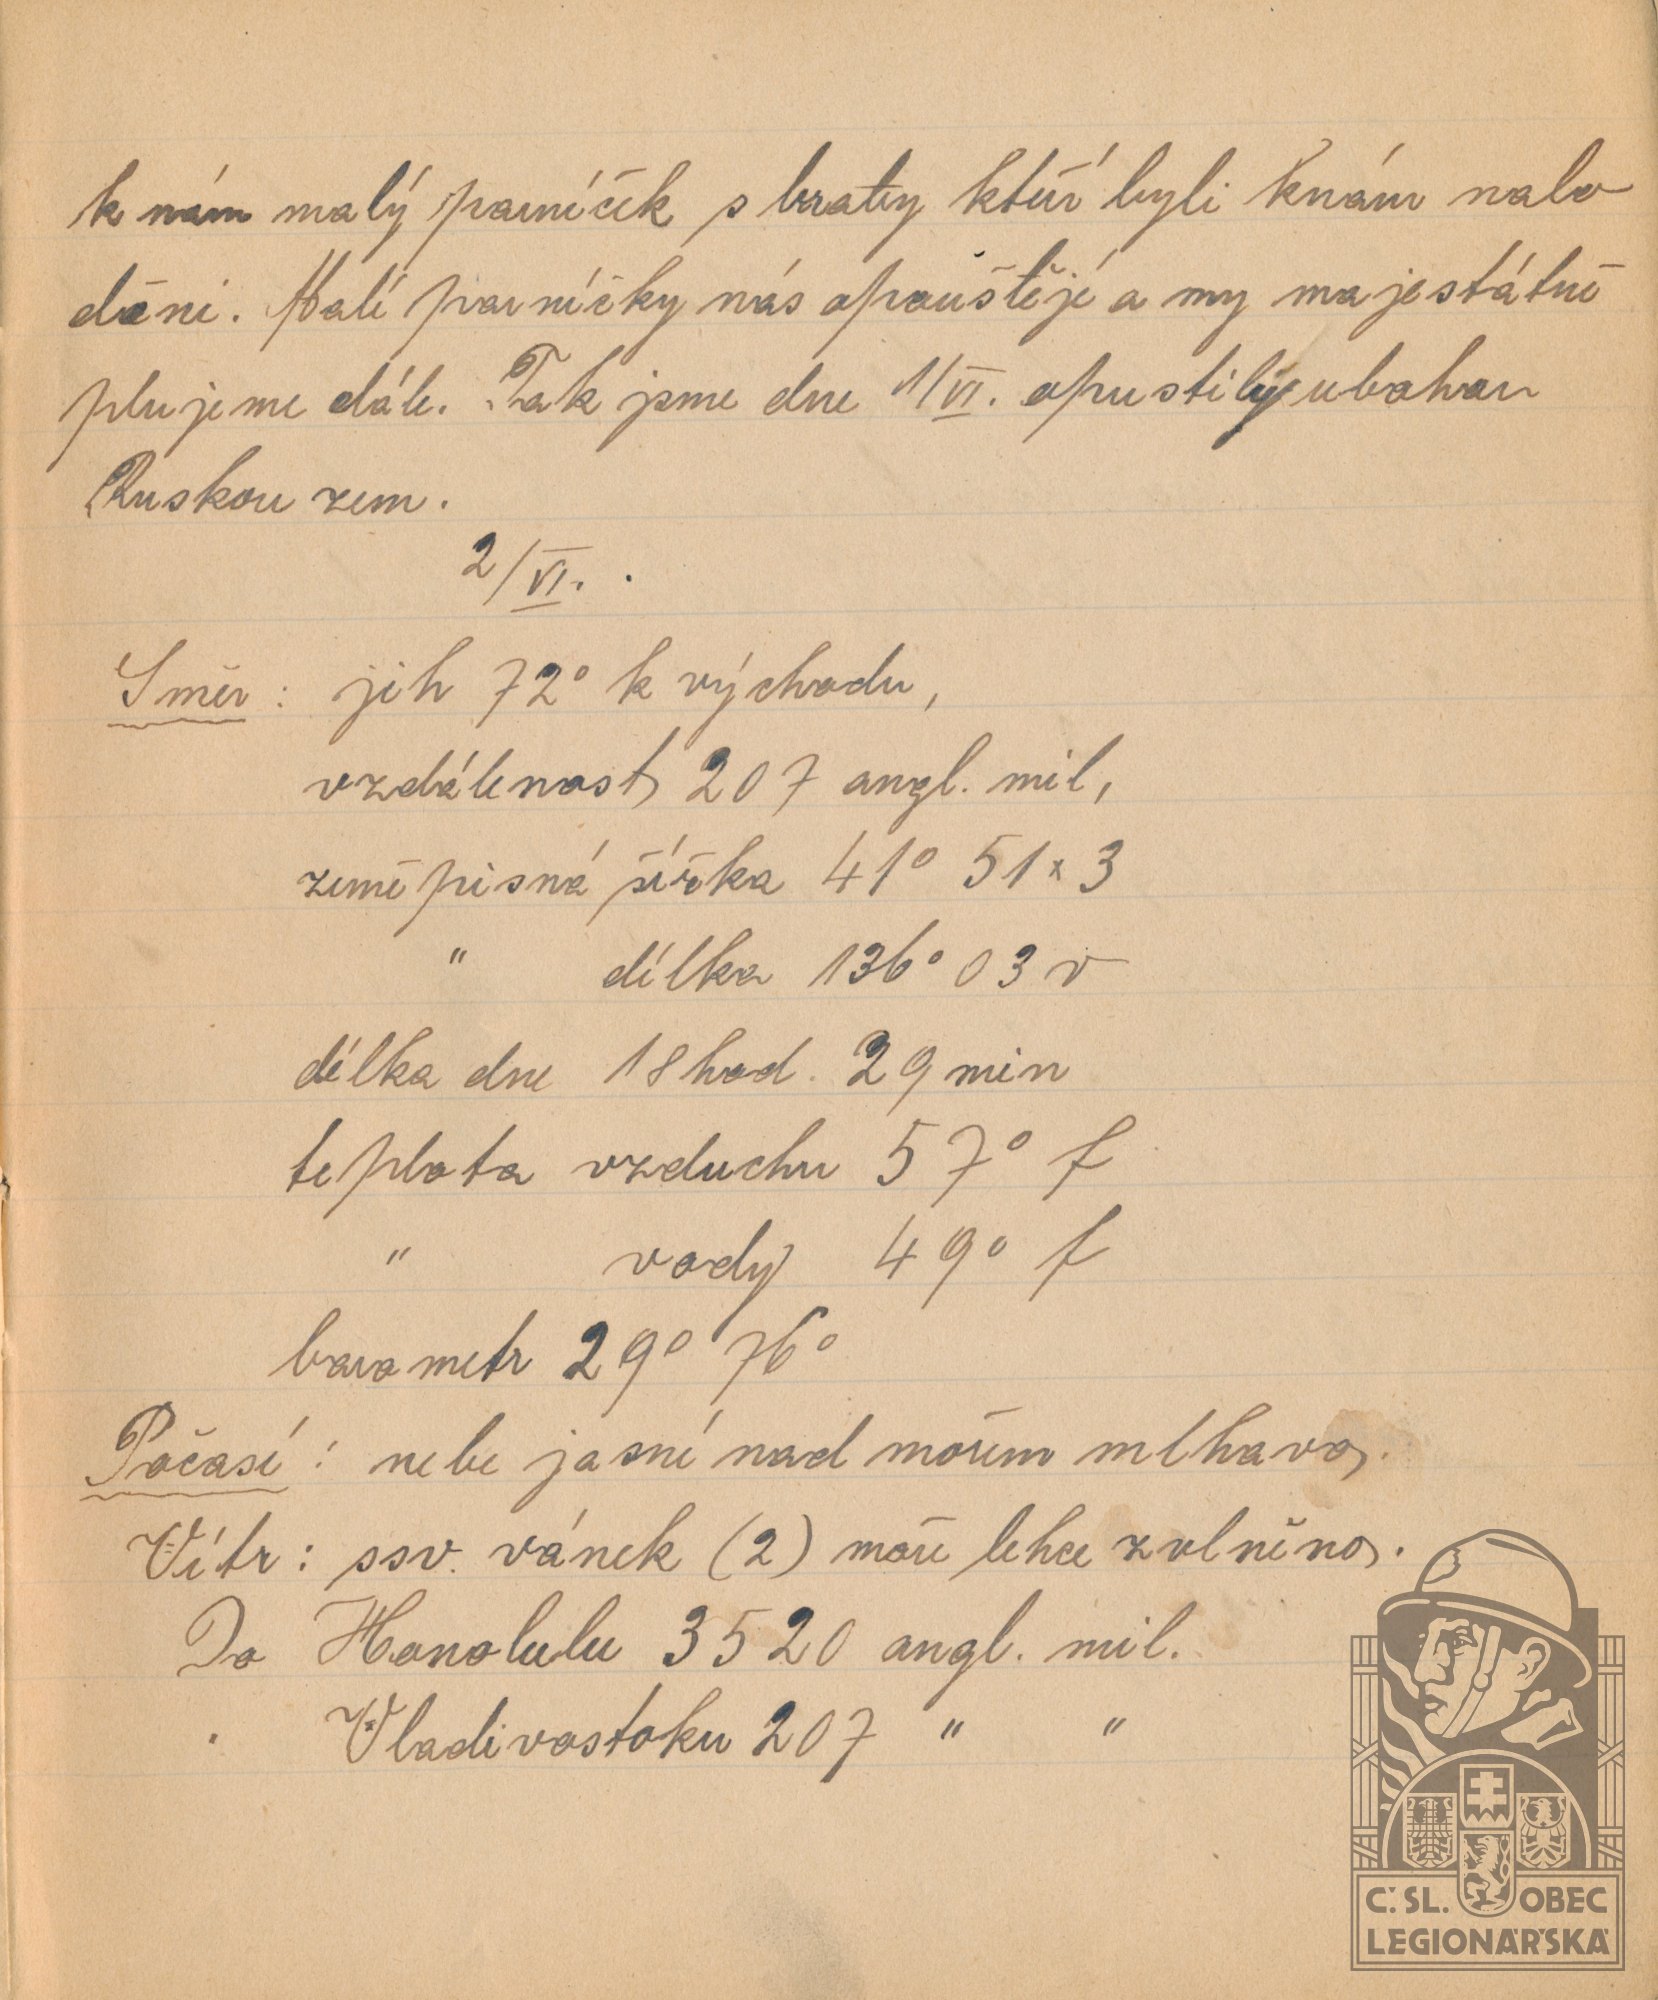 k nám malý parníček s bratry kteří byli k nám nalo
děni. Malé parníčky nás opouštějé a my majestátně
plujeme dále. Tak jsme dne 1/VI. opustily ubohou
Ruskou zem.
2/VI.
Směr: jih 72° k východu,
vzdálenost 207 angl. mil,
zeměpisná šířka 41° 51 x 3
" délka 136° 03 v
délka dne 18 hod. 29 min
teplota vzduchu 57° f
" vody 49° f
barometr 29° 76°
Počasí: nebe jasné nad mořem mlhavo.
Vítr: ssv. vánek (2) moře lehce zvlněno.
Do Honolulu 3520 angl. mil.
. Vladivostoku 207 " "
Č. SL. OBEC
LEGIONÁŘSKÁ